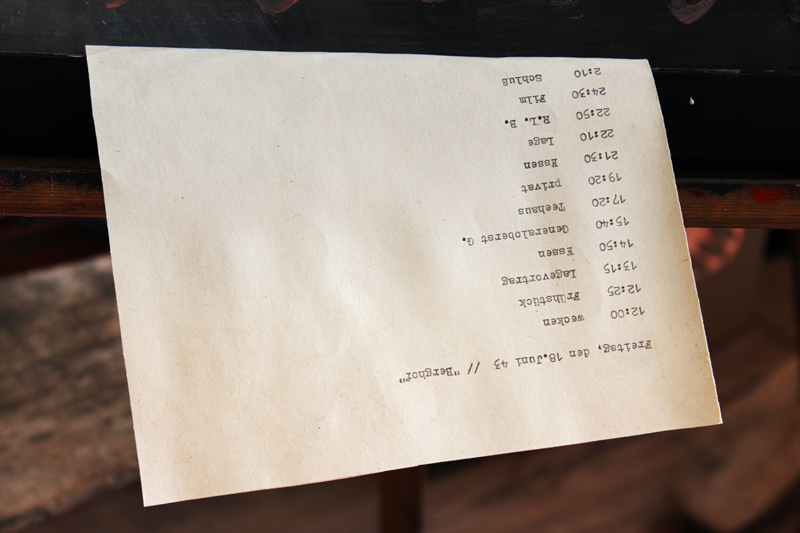 Freitag, den 18.Juni 43 // "Berghof"
12:00 wecken
12:25 Frühstück
13:15 Lagevortrag
14:50 Essen
15:40 Generaloberst G.
17:20 Teehaus
19:20 privat
21:30 Essen
22:10 Lage
22:50 R.L. B.
24:30 Film
2:10 Schluß